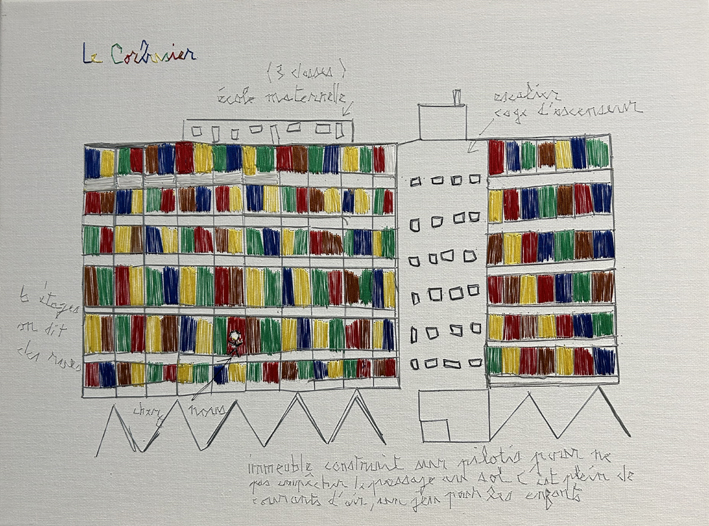 Le Corbusier
(3 classes)
école maternelle
escalier
cage d'ascenseur
6 étages
on dit
des rues
chez nous
immeuble construit sur pilotis pour ne
pas empêcher le passage au sol c'est plein de
courants d'air, un jeu pour les enfants